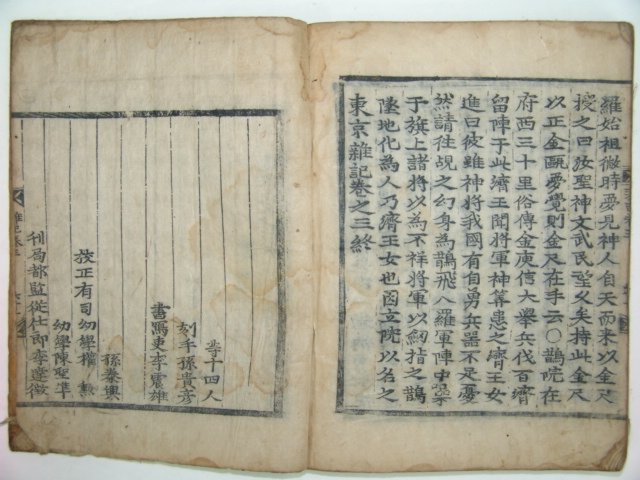 羅始祖微時夢見神人自天而來以金尺
授之曰汝聖神文武民望久矣持此金尺
以正金甌夢覺則金尺在手云○鵲院在
府西三十里俗傳金庾信大擧兵伐百濟
留陣于此濟王聞將軍神筭患之濟王女
進曰彼雖神將我國有自勇兵器不足憂
然請往覘之幻身為鵲飛入羅軍陣中噪
于旗上諸將以為不祥將軍以劒指之鵲
墜地化為人乃濟王女也因立院以名之
東京雜記卷之三終
等十四人
刻手孫貴彦
書寫吏李震雄
孫
校正有司幼學權
幼學陳聖凖
刊局都監從仕郎李